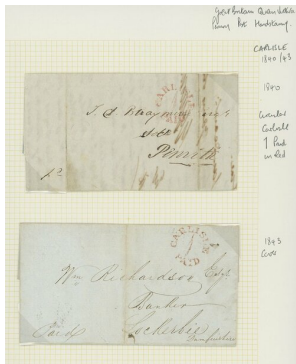 Great Britain Queen Victoria
Penny Post Handstamp
CARLISLE
1840/43
1840
Circular
Carlisle
1 Paid
in Red
CARLISLE
Penrith
1d
1843
Cover
CARLISLE
1
PAID
Wm Richardson Esqr
Banker
Lockerbie
Dumfries
Paid